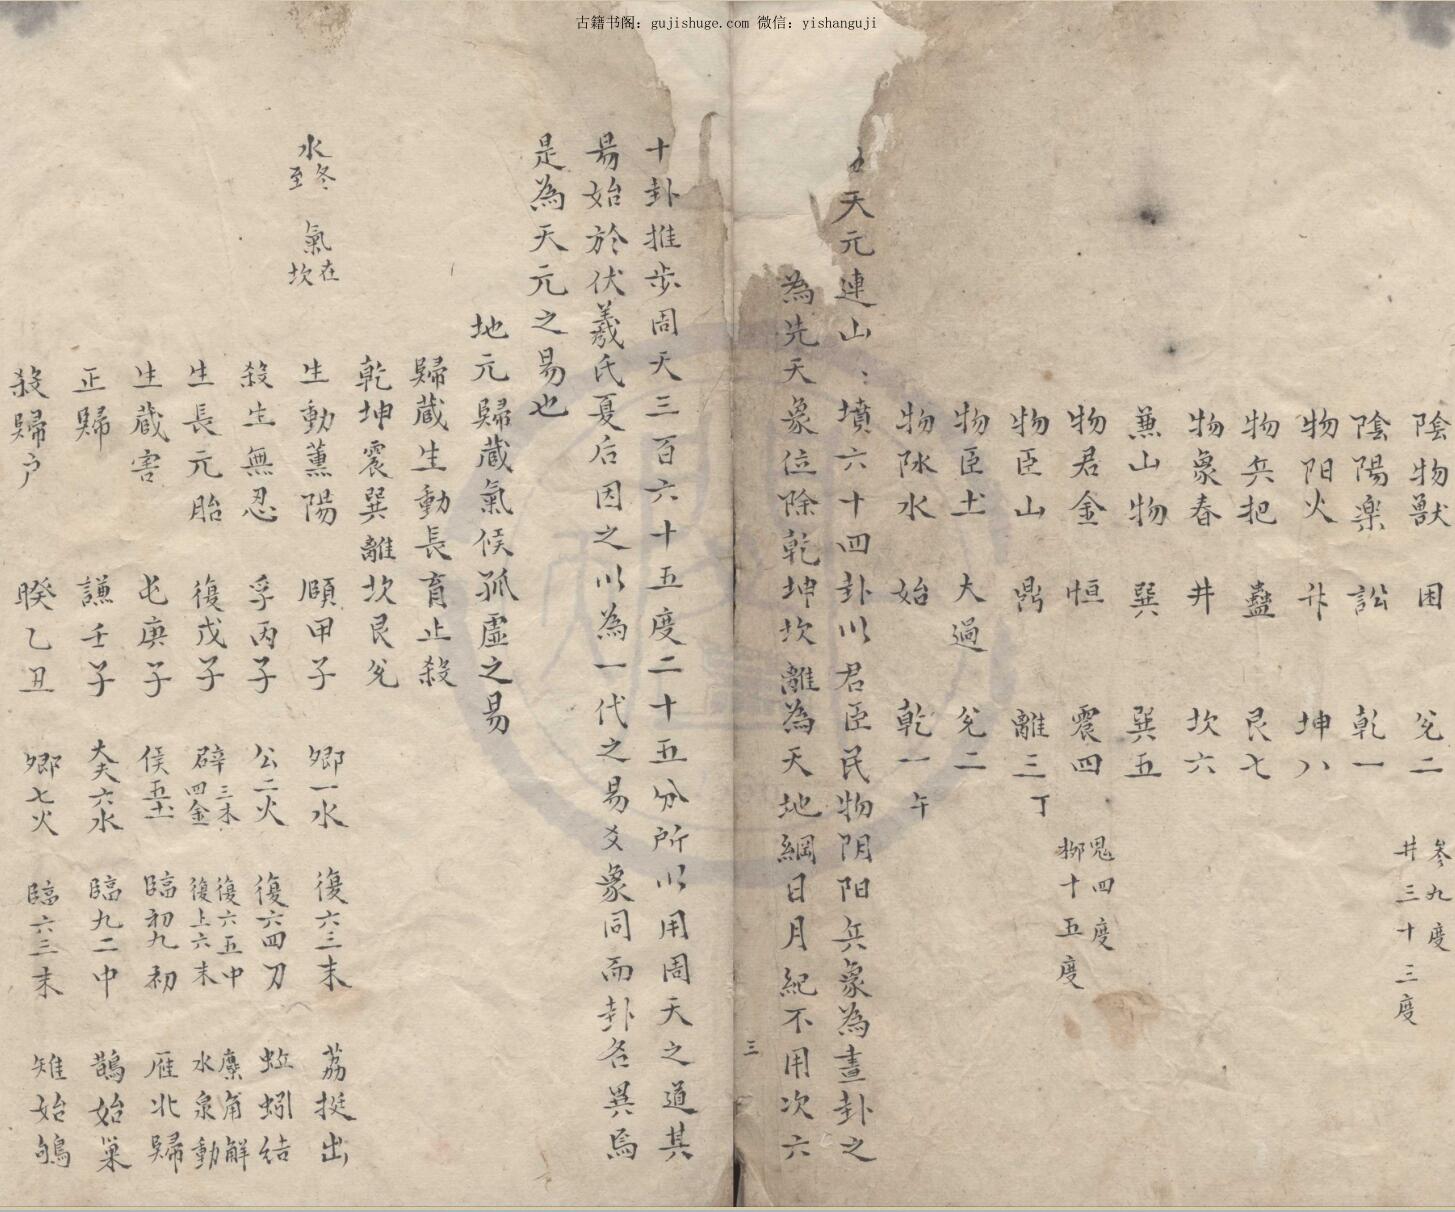 古籍书阁：gujishuge.com 微信：yishanguji
陰物獸 困 兌二 參九度 井三十三度
陰陽楽 訟 乾一
物阳火 升 坤八
物兵把 蠱 艮七
物象春 井 坎六
兼山物 巽 巽五
物君金 恒 震四 鬼四度 柳十五度
物臣山 鼎 離三 丁
物臣土 大過 兌二
物水 始 乾一 午
天元連山 墳六十四卦以君臣民物阴阳兵象為畫卦之
為先天象位除乾坤坎離為天地綱日月紀不用次六
三
十卦推步周天三百六十五度二十五分所以用周天之道其
易始於伏羲氏夏后因之以為一代之易爻象同而卦名異焉
是為天元之易也
地元歸蔵氣候孤虛之易
歸蔵生動長育止殺
乾坤震巽離坎艮兌
水冬至 氣在坎
生動薰陽 頤甲子 卿一水 復六三末 荔挺出
殺生無忍 孚丙子 公二火 復六四刀 蚯蚓结
生長元胎 復戊子 辟三木四金 復六五中復上六末 麋角解水泉動
生蔵害 屯庚子 侯五土 臨初九初 雁北歸
正歸 謙壬子 大夫六水 臨九二中 鵲始巢
殺歸户 睽乙丑 卿七火 臨六三末 雉始雊